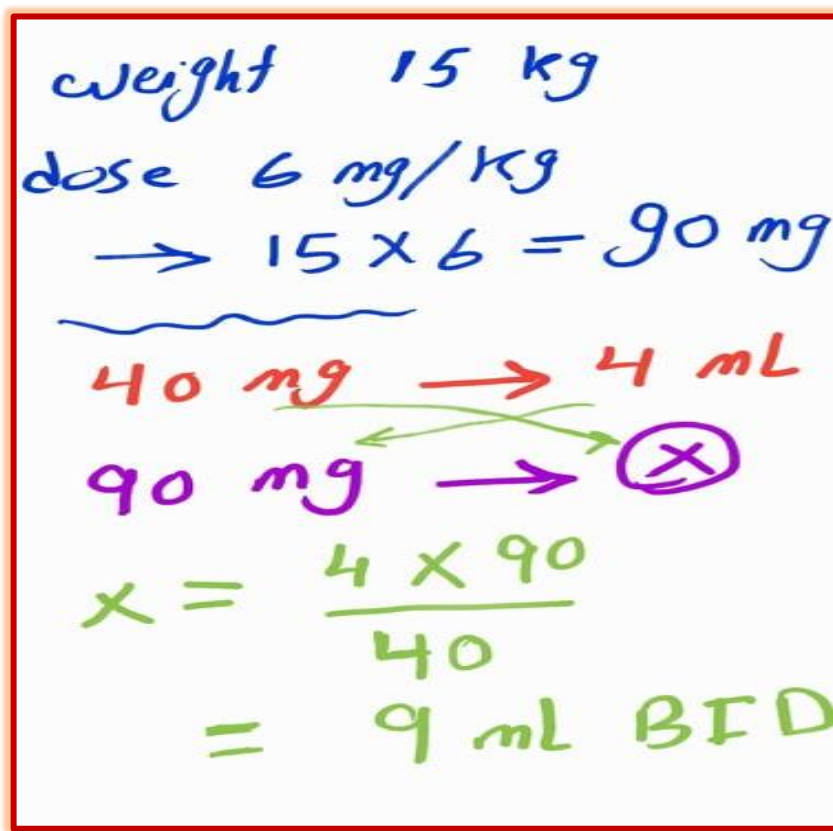 weight 15 kg
dose 6 mg/kg
→ 15 × 6 = 90 mg
40 mg → 4 mL
90 mg → x
x = 4 × 90 / 40
= 9 mL BID